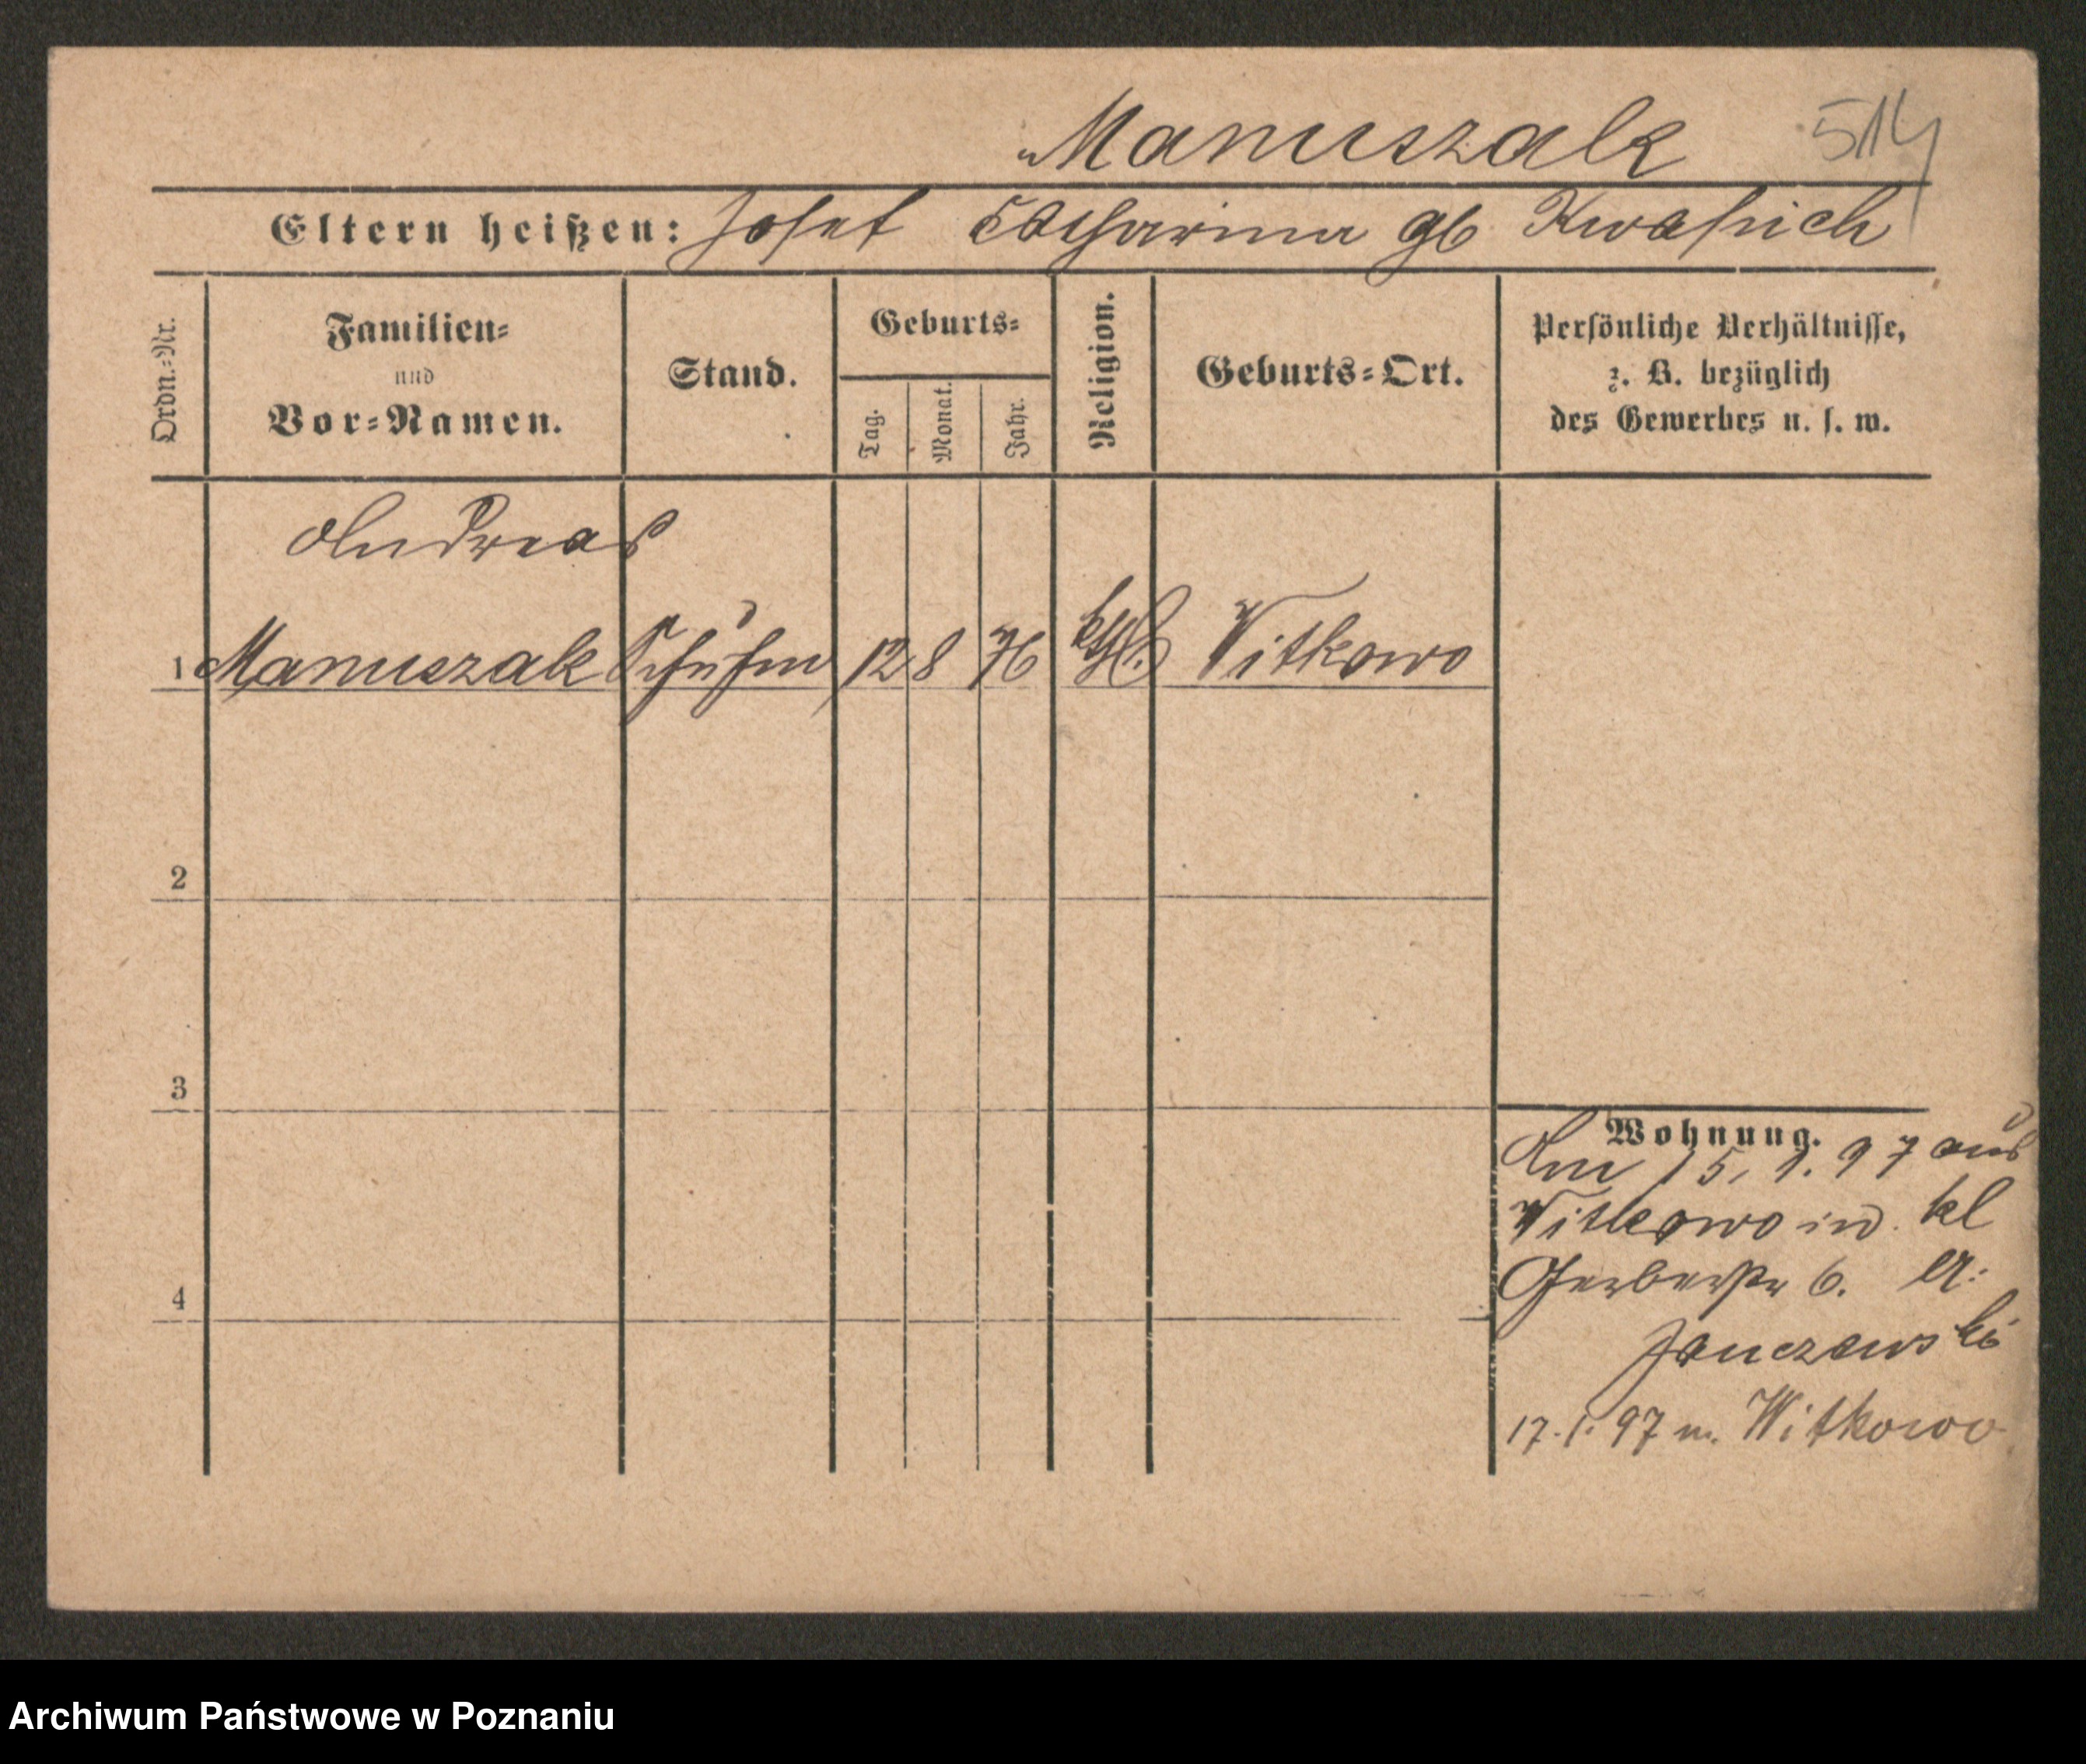 Manuszak 514
Eltern heißen: Josef Catharina gb Kwasnich
Ordn.-Nr.
Familien-
und
Vor-Namen.
Stand.
Geburts-
Tag.
Monat.
Jahr.
Religion.
Geburts-Ort.
Persönliche Verhältnisse,
z. B. bezüglich
des Gewerbes u. s. w.
Andreas
1 Manuszak Schuhm 12 8 76 kth. Witkowo
2
3
4
Wohnung.
Am 15. 1. 97 aus
Witkowo in kl
Gerberstr 6.
Janczewski
17. 1. 97 n. Witkowo
Archiwum Państwowe w Poznaniu